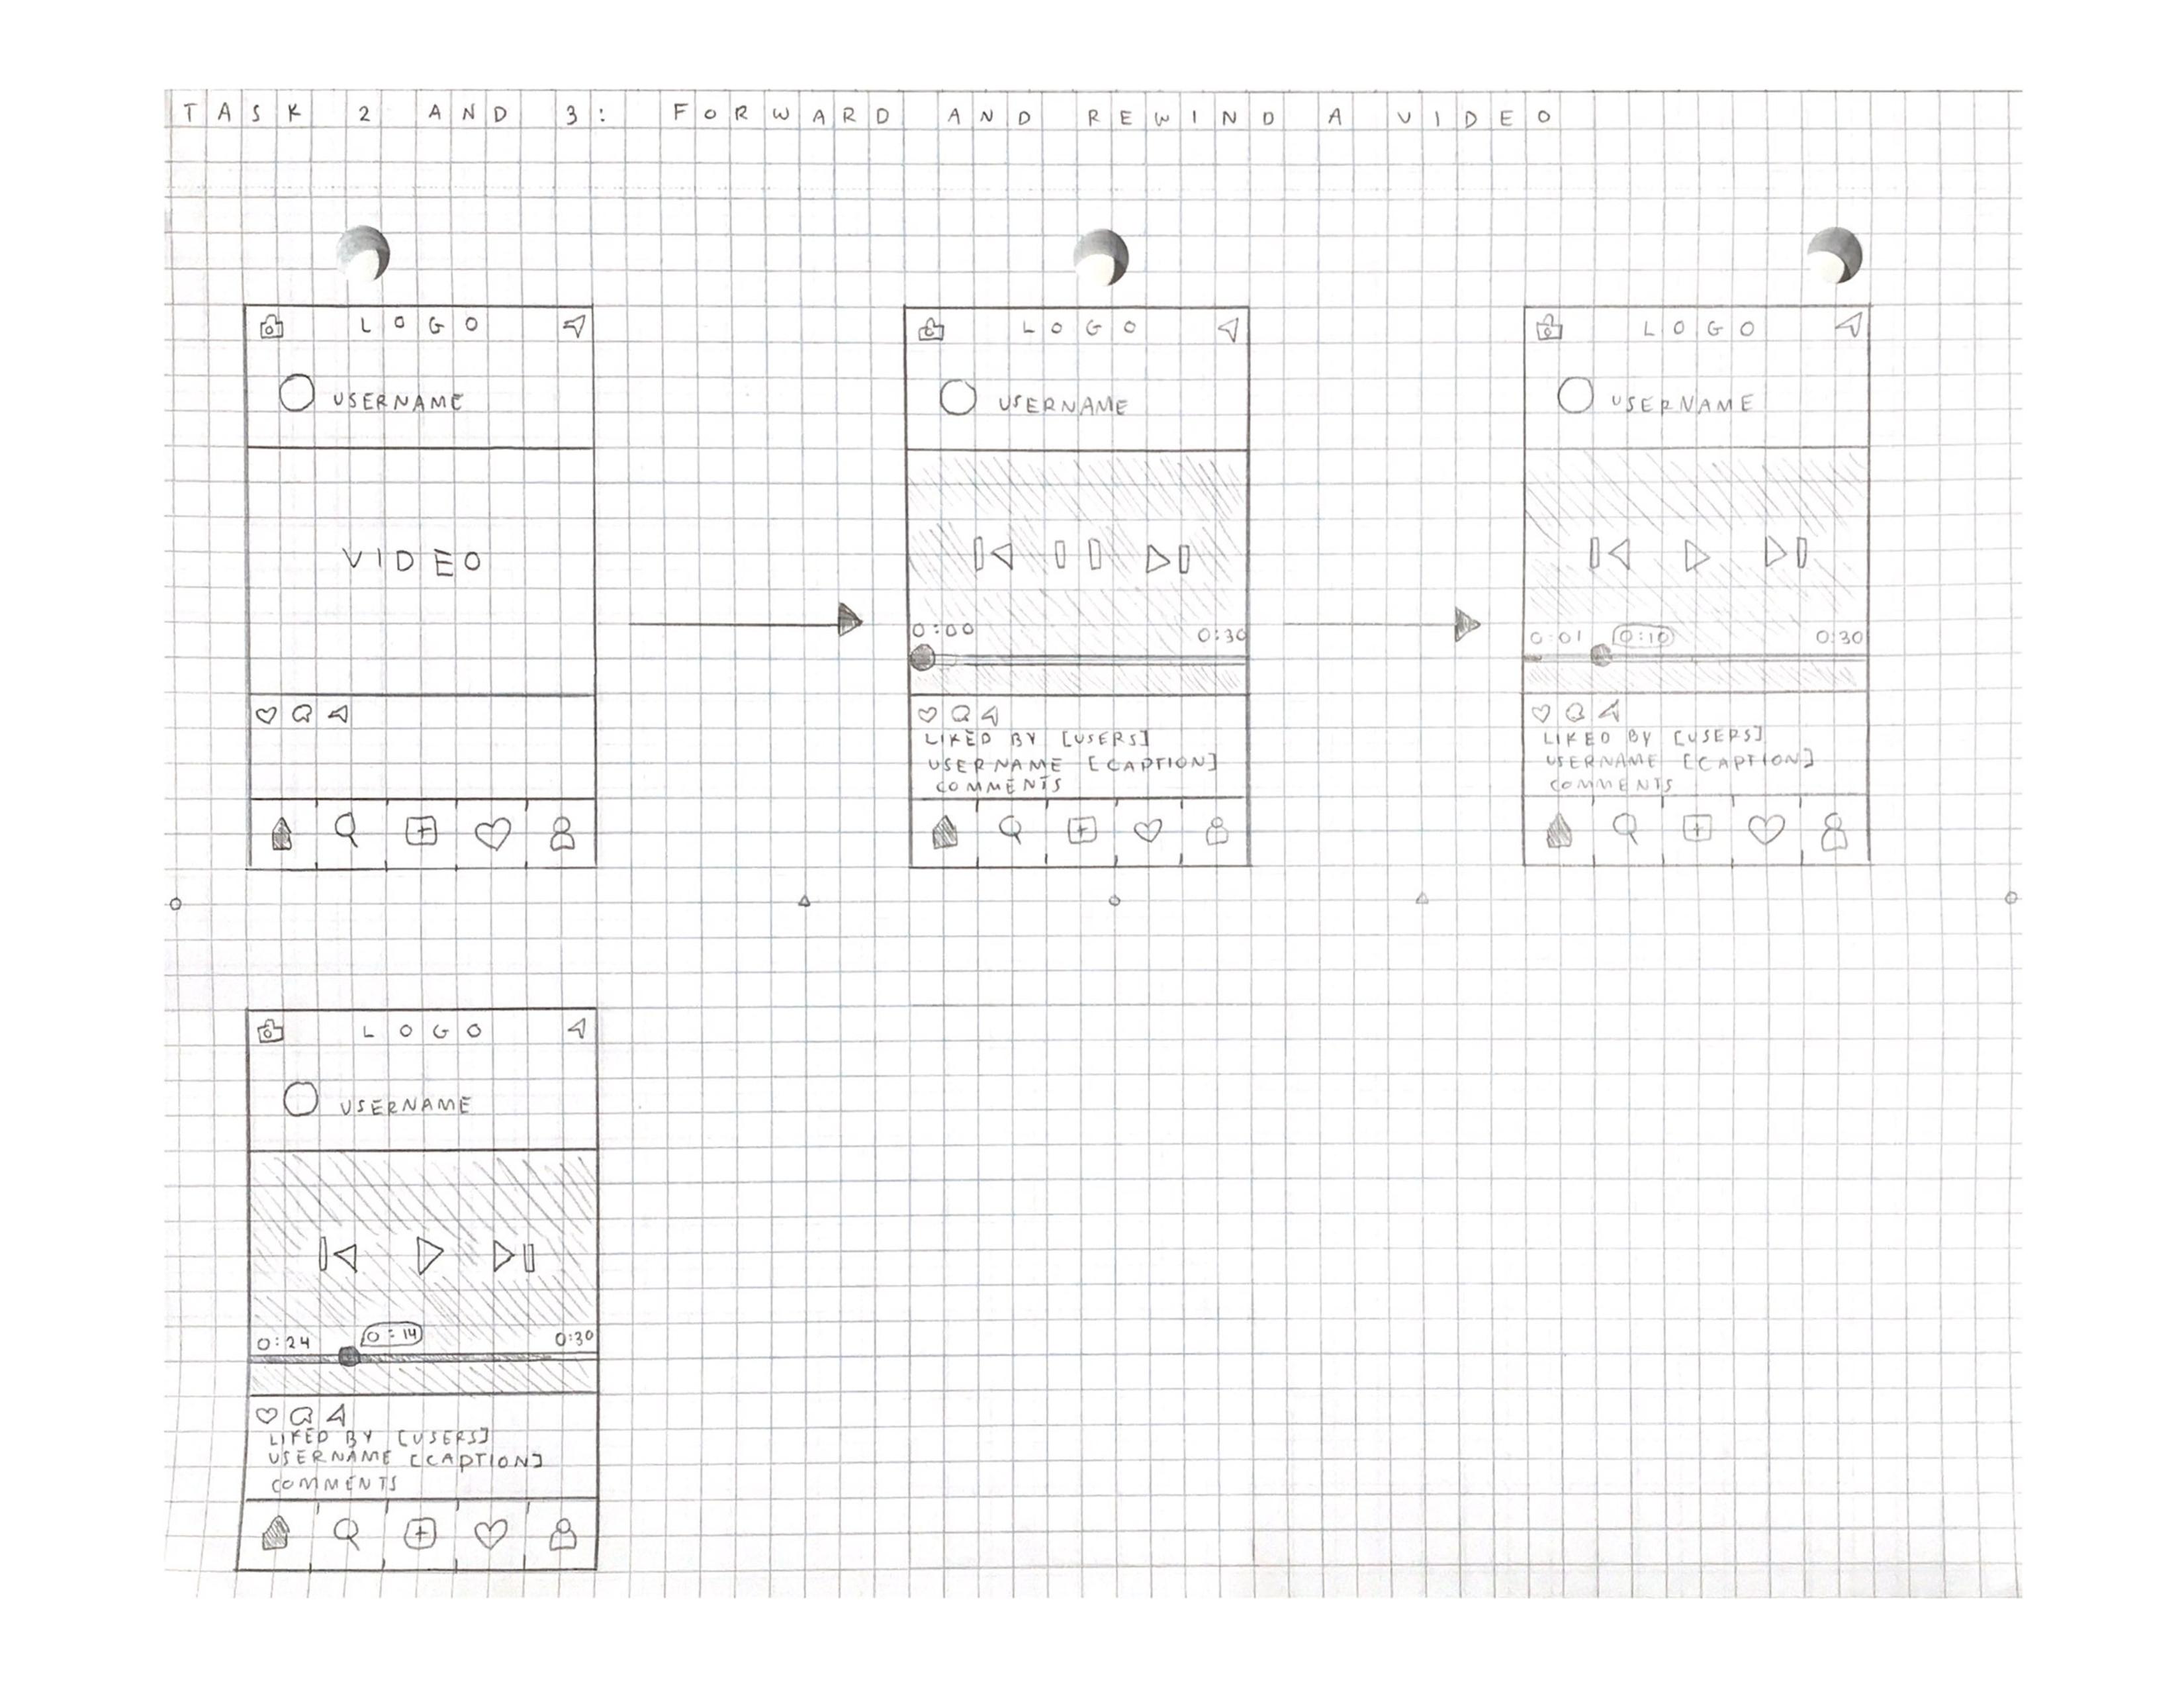 TASK 2 AND 3: FORWARD AND REWIND A VIDEO
LOGO
USERNAME
VIDEO
LOGO
USERNAME
0:00 0:30
LIKED BY [USERS]
USERNAME [CAPTION]
COMMENTS
LOGO
USERNAME
0:01 0:10 0:30
LIKED BY [USERS]
USERNAME [CAPTION]
COMMENTS
LOGO
USERNAME
0:24 0:14 0:30
LIKED BY [USERS]
USERNAME [CAPTION]
COMMENTS